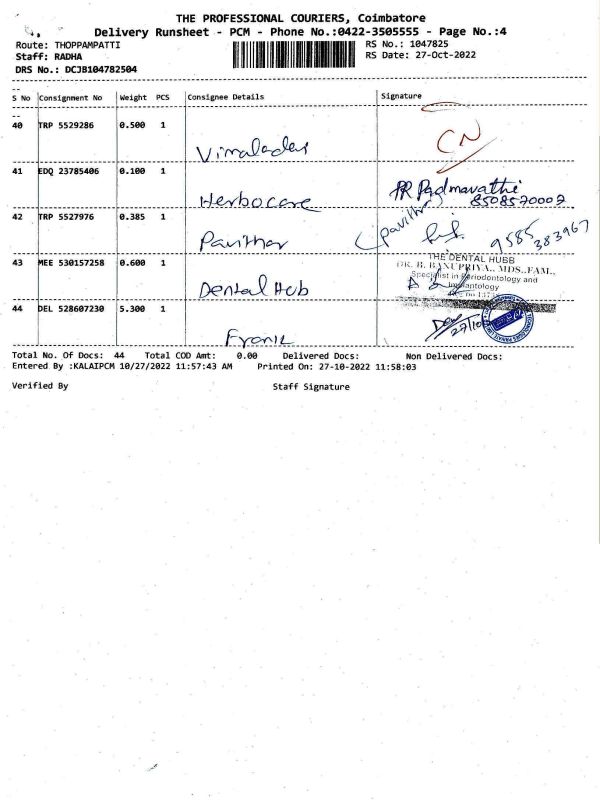 THE PROFESSIONAL COURIERS, Coimbatore
Delivery Runsheet - PCM - Phone No.:0422-3505555 - Page No.:4
Route: THOPPAMPATTI
RS No.: 1047825
Staff: RADHA
RS Date: 27-Oct-2022
DRS No.: DCJB104782504
S No Consignment No Weight PCS Consignee Details Signature
40 TRP 5529286 0.500 1
CN
Vimaladevi
41 EDQ 23785406 0.100 1
PR Padmavathi
8508570002
Herbocare
42 TRP 5527976 0.385 1
(pavithra)
9585 383967
Pavithor
43 MEE 530157258 0.600 1
THE DENTAL HUBB
DR. B. BANUPRIYA., MDS.,FAM.,
Specialist in Periodontology and
Implantology
Dental Hub
44 DEL 528607230 5.300 1
27/10
Fronic
Total No. Of Docs: 44 Total COD Amt: 0.00 Delivered Docs: Non Delivered Docs:
Entered By :KALAIPCM 10/27/2022 11:57:43 AM Printed On: 27-10-2022 11:58:03
Verified By Staff Signature